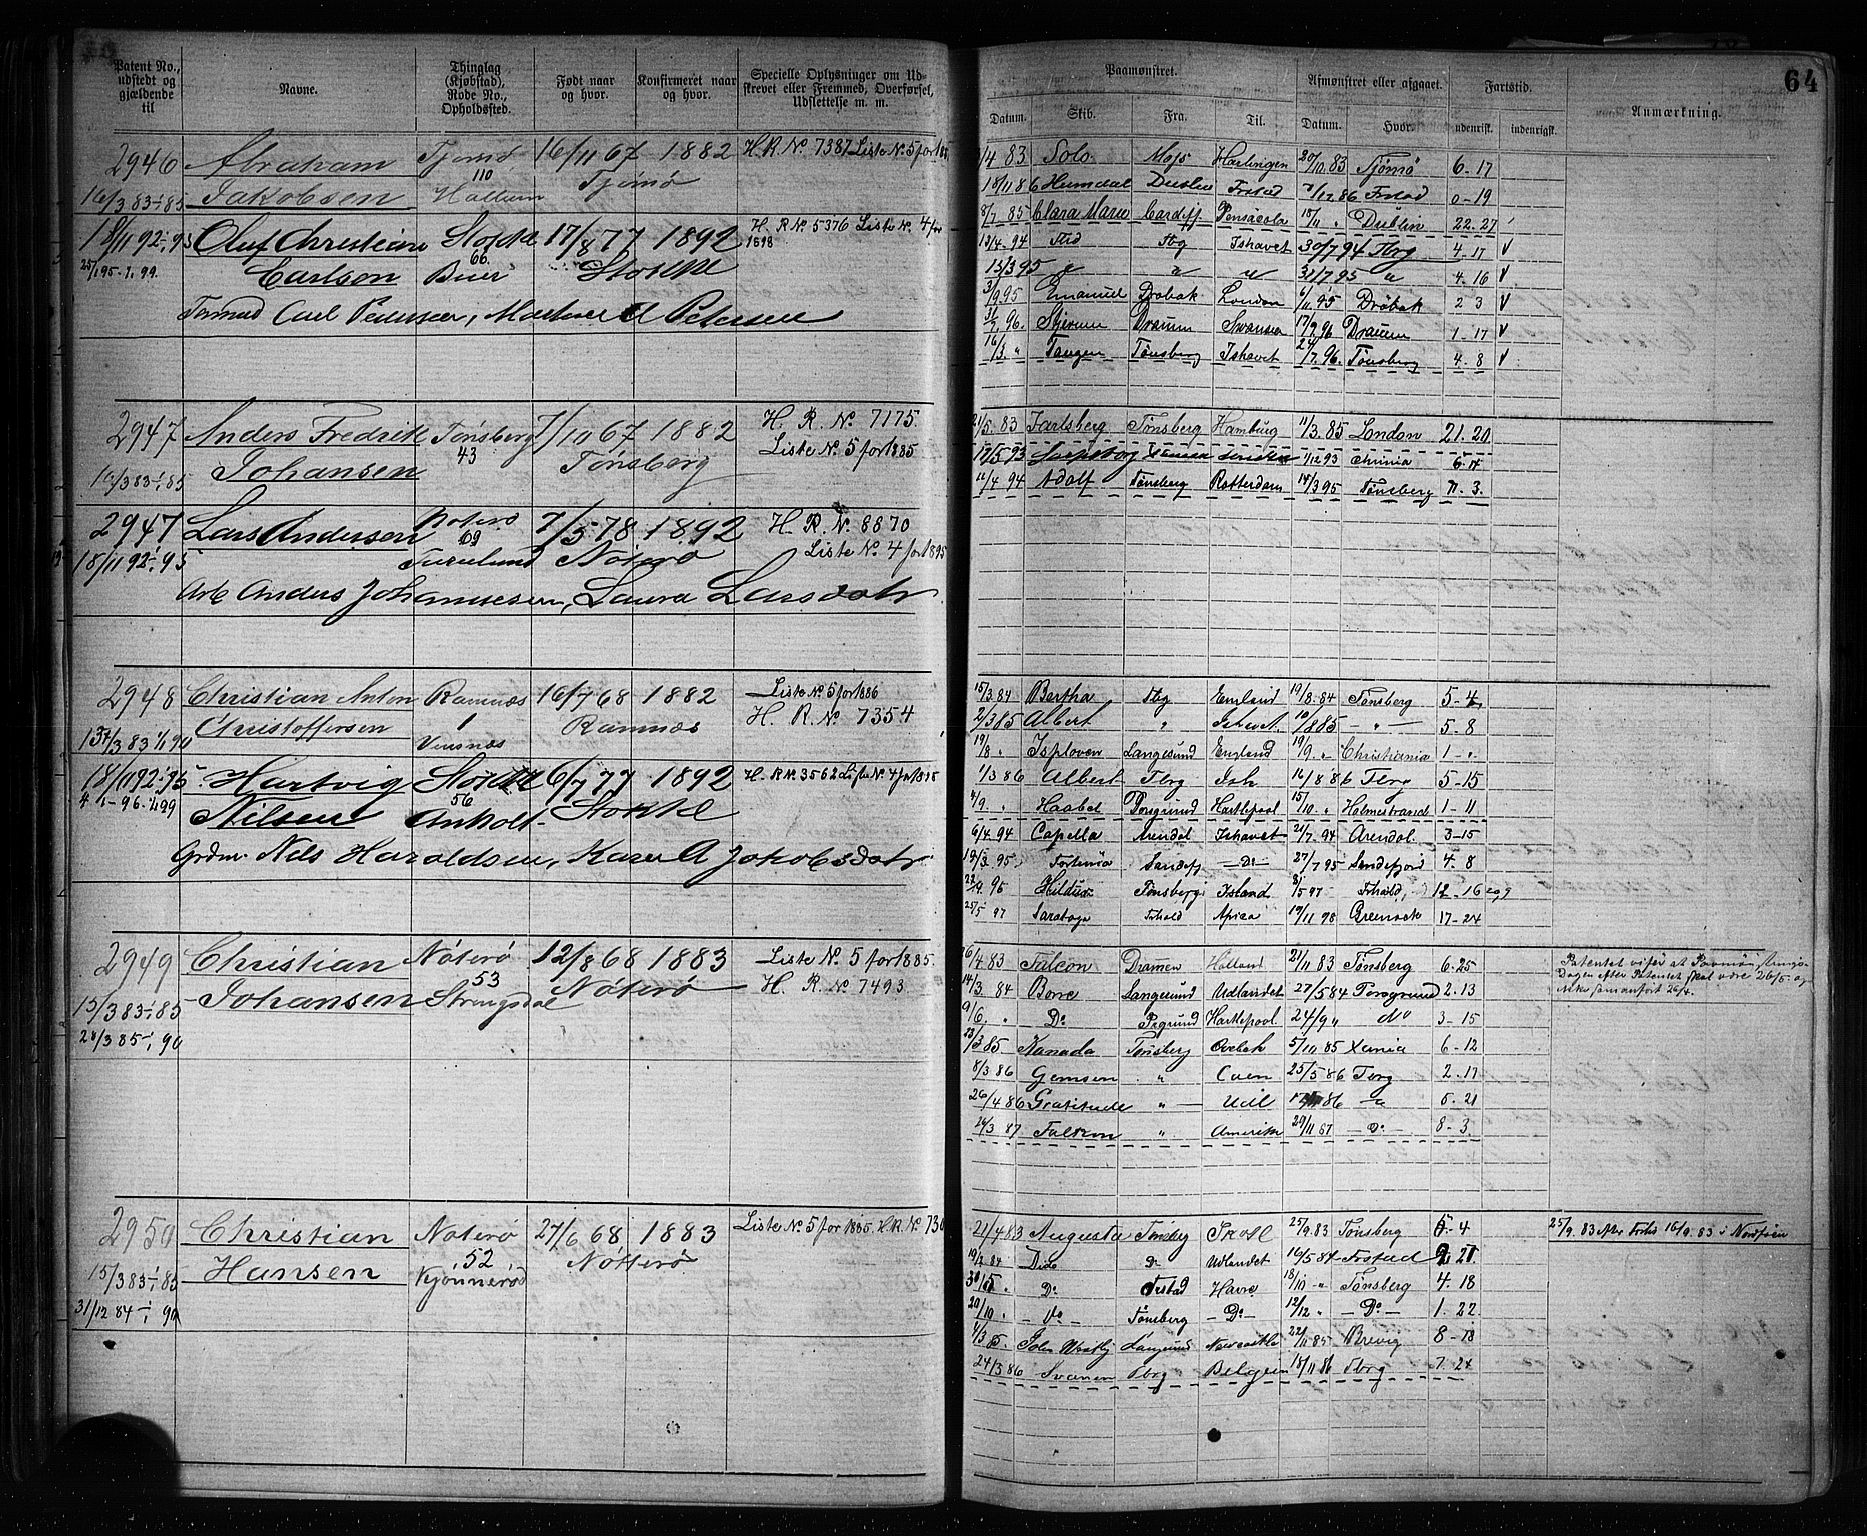 64
Patent No., udstedt og gjældende til
Navne.
Thinglag (Kjøbstad), Rode No., Opholdssted.
Født naar og hvor.
Konfirmeret naar og hvor.
Specielle Oplysninger om Udskrevet eller Fremmed, Overførsel, Udslettelse m. m.
Paamønstret.
Afmønstret eller afgaaet.
Fartstid.
Anmærkning.
Datum. Skib. Fra. Til. Datum. Hvor. udenrigsk. indenrigsk.
2946 Abraham Tjømø 16/11 67 1882 H.R.No 7387 Liste No. 5 for 885
110 Tjømø
16/3 83 1/1 85 Jakobsen
18/11 92 1/1 95 Oluf Christian Stokke 17/8 77 1892 H. R No 5376 Liste No. 4 for 1898
66
25/1 95 - 1. 99. Carlson Buer Stokke
Carl Pedersen, A Petersen
2947 Anders Fredrik Tønsberg 7/10 67 1882 H. R. No. 7175
43 Tønsberg Liste No. 5 for 1885
83 1/1 85 Johansen
2947 Lars Andersen Nøterø 7/5 78 1892 H. R. No. 8870
69 Liste No. 4 for 1895
18/11 92 1/1 95 Nøterø
Arb Anders Johannesen, Laura Larsdatr
2948 Christian Anton Ramnæs 16/7 68 1882 Liste No 5 for 1886
Christoffersen 1 Ramnæs H. R. No 7354
13/3 83 1/1 90
18/11 92 1/1 95 Hartvig Stokke 6/7 77 1892 H. R No. 3562 Liste No. 4 for 1895
56
4/1 - 96 - 1/1 99 Nilsen Anholt Stokke
Grdm. Nils Haroldsen, Karen A Jakobsdatr
2949 Christian Nøterø 12/8 68 1883 Liste No 5 for 1885.
53 Nøterø H. R. No 7493
15/3 83 1/1 85 Johansen
28/3 85 1/1 90
2950 Christian Nøterø 27/6 68 1883 Liste No 5 for 1885. H.R. No 730
52 Nøtterø
15/3 83 1/1 85 Hansen Kjønnerød
31/12 84 1/1 90
/4 83 Solo Moss Harlingen 20/10 83 Tjømø 6-17
18/11 86 Humdal Dublin Frstad 7/12 86 Frstad 0-19
8/7 85 Clara Marie Cardiff Pensacola 18/11 " Dublin 22-27
13/4 94 Tbg Ishavet 30/7 94 Tbrg 4-17 V
13/3 95 " " " 31/7 95 " 4-16 V
3/9 95 Emanuel Drøbak London 6/11 95 Drøbak 2 3 V
31/7 96. Stjernen Dramm Swansea 17/9 96 Dramm 1-17 V
16/3 " Tangen Tønsberg Ishavet 24/7 96. Tønsberg 4-8 V
21/5 83 Jarlsberg Tønsberg Hamburg 11/3 85 London 21-20
17/5 93 Xania 1/12 93 6-14
11/4 94 Adolf Tønsberg Rotterdam 14/3 95 Tønsberg 11-3
15/3 84 Bertha Tbg England 19/8 84 Tønsberg 5-4
2/3 85 Albert " Ishavet 10/8 85 " 5-8
19/8 " Isploven Langesund England 19/9 " Christiania 1-"
1/3 86 Albert Tbrg Ish 16/8 86 Tbrg 5-15
4/9 " Haabet Porsgrund Hartlepool 15/10 " Holmestrand 1-11
6/4 94 Capella Arendal Ishavet 21/7 94 Arendal 3-15
12/3 95 Fortuna Sandefj - Do - 27/7 95 Sandefjord 4-8
22/9 96 Hildur Tønsberg Island 31/5 97 Frhald 12-16
25/5 97 Saratoga Frhald Africa 19/11 98 17-24
26/4 83 Falcon Dramen Holland 21/11 83 Tønsberg 6-25
14/3 84 Borre Langesund Udlandet 27/5 84 Porsgrund 2-13
9/6 " Do Prgrund Hartlepool 24/9 " Do 3-15
23/3 85 Kanada Tønsberg Qvebek 5/10 85 Xania 6-12
8/3 86 Gemsen " Caen 25/5 86 Tbrg 2-17
26/4 86 Gratitude " Udl 86 " 5-21
24/3 87 Falkon " Amerika 29/11 87 - Do - 8-3
Patentet viser at Paamønstrings-
Dagen efter Patentet skal være 26/5 og
ikke som anført 26/4.
21/4 83 Augusta Tønsberg 25/9 83 Tønsberg 5-4
25/9. 83 efter Forlis 16/9. 83 i Nordsøen
19/2 84 Dido Do Udlandet 16/5 84 Frstad 2-27
30/5 " Do Frstad Havre 18/10 " Tønsberg 4-18
20/10 " Do Tønsberg - Do - 12/12 " - Do - 1-22
John Langesund Newcastle 22/11 85 Brevig 8-18
24/3 86 Svanen Tbrg Belgien 18/11 86 Tbrg 7-24